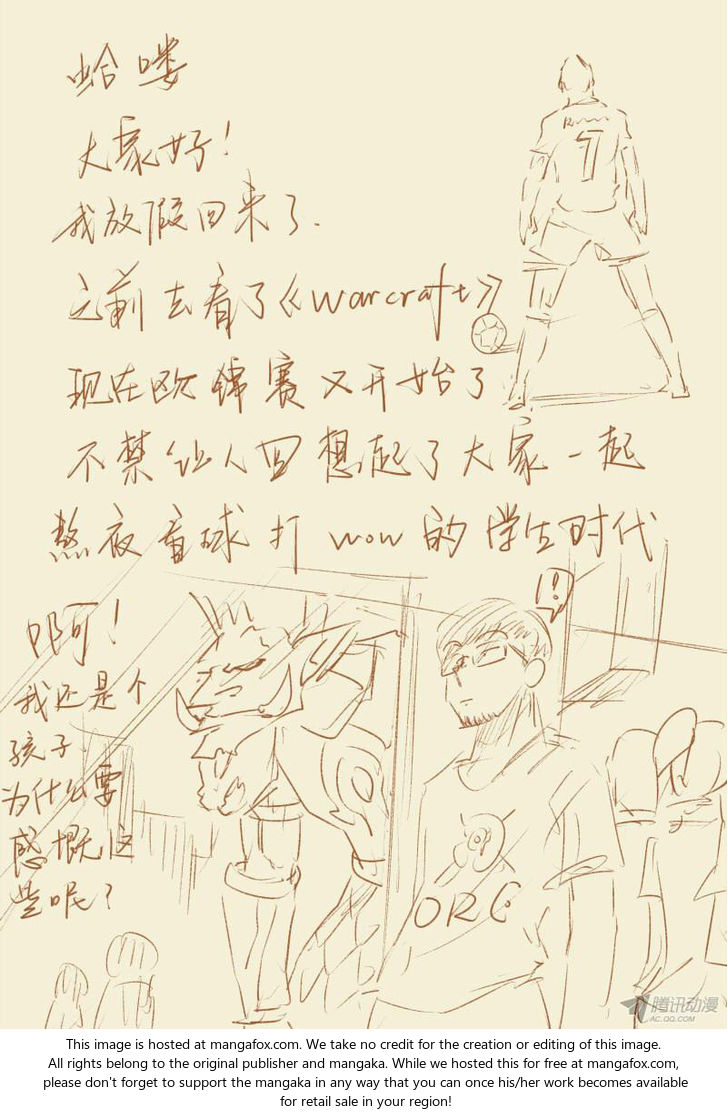 哈喽
大家好!
我放假回来了.
之前去看了《warcraft》
现在欧锦赛又开始了
不禁让人回想起了大家一起
熬夜看球打wow的学生时代
7
!
啊!
我还是个
孩子
为什么要
感慨这
些呢?
ORC
腾讯动漫
AC.QQ.COM
This image is hosted at mangafox.com. We take no credit for the creation or editing of this image.
All rights belong to the original publisher and mangaka. While we hosted this for free at mangafox.com,
please don't forget to support the mangaka in any way that you can once his/her work becomes available
for retail sale in your region!